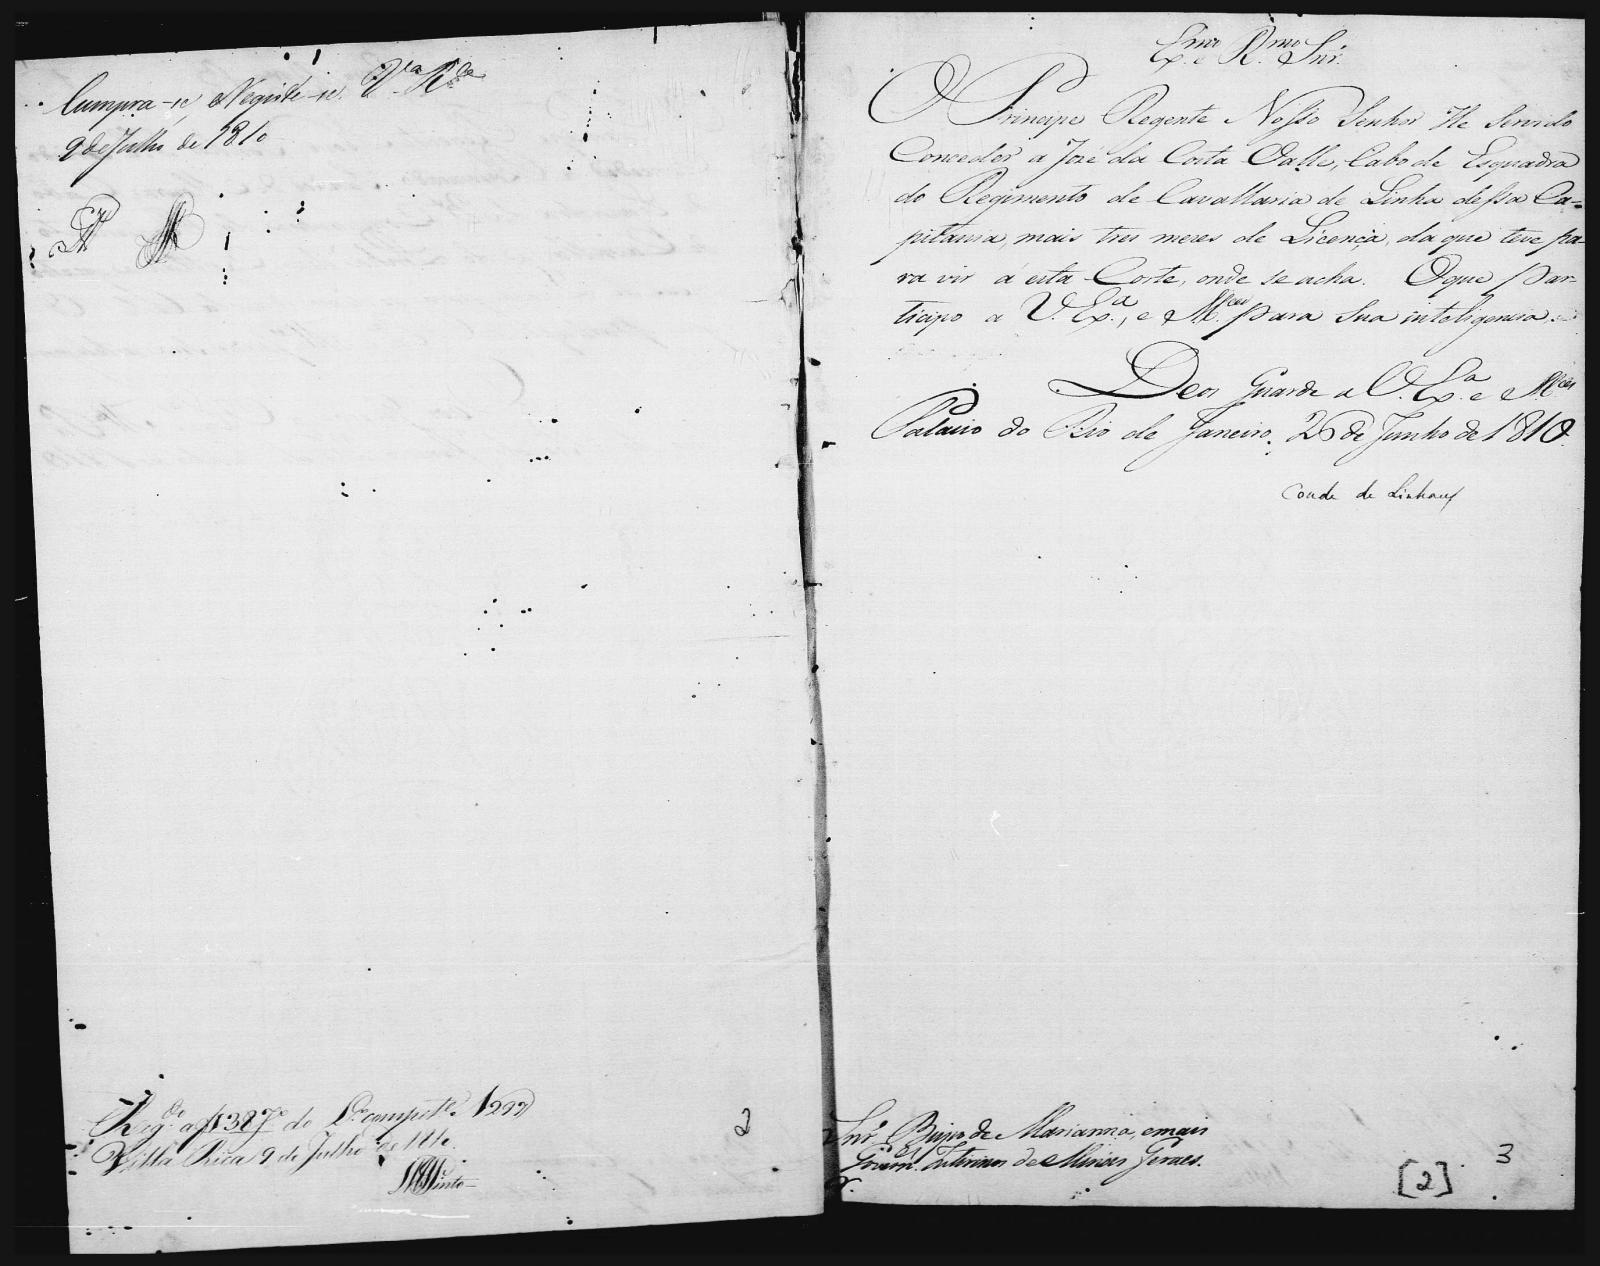 Cumpra-se, e Registe-se. V.ª R.ca
9 de Julho de 1810
Reg.do a f 387 do L.º compet.e 
Villa Rica 9 de Julho de 1810.
Pinto
2
Ex.mo e R.mo Snr.
O Principe Regente Nosso Senhor He Servido
Conceder a José da Costa Valle, Cabo de Esquadra
do Regimento de Cavallaria de Linha dessa Ca=
pitania, mais tres mezes de Licença, da que teve pa-
ra vir á esta Corte, onde se acha. O que Par-
ticipo a V. Ex.ª, e M.ces para Sua inteligencia.
Deos Guarde a V. Ex.ª e M.ces
Palacio do Rio de Janeiro, 26 de Junho de 1810.
Conde de Linhares
Snr. Bispo de Marianna, e mais
Govern.es Interinos de Minas Geraes.
[2]
3